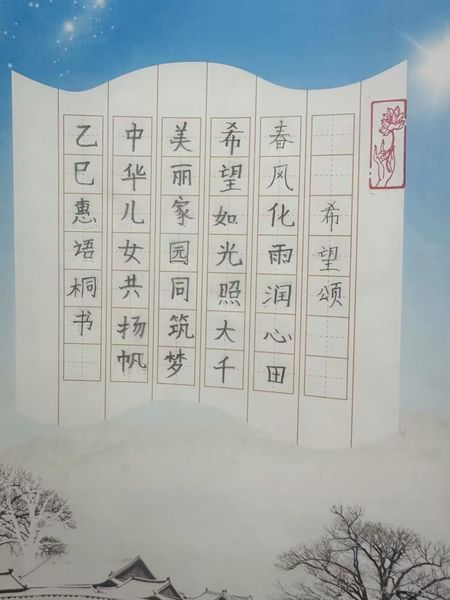 希望颂
春风化雨润心田
希望如光照大千
美丽家园同筑梦
中华儿女共扬帆
乙巳惠语桐书